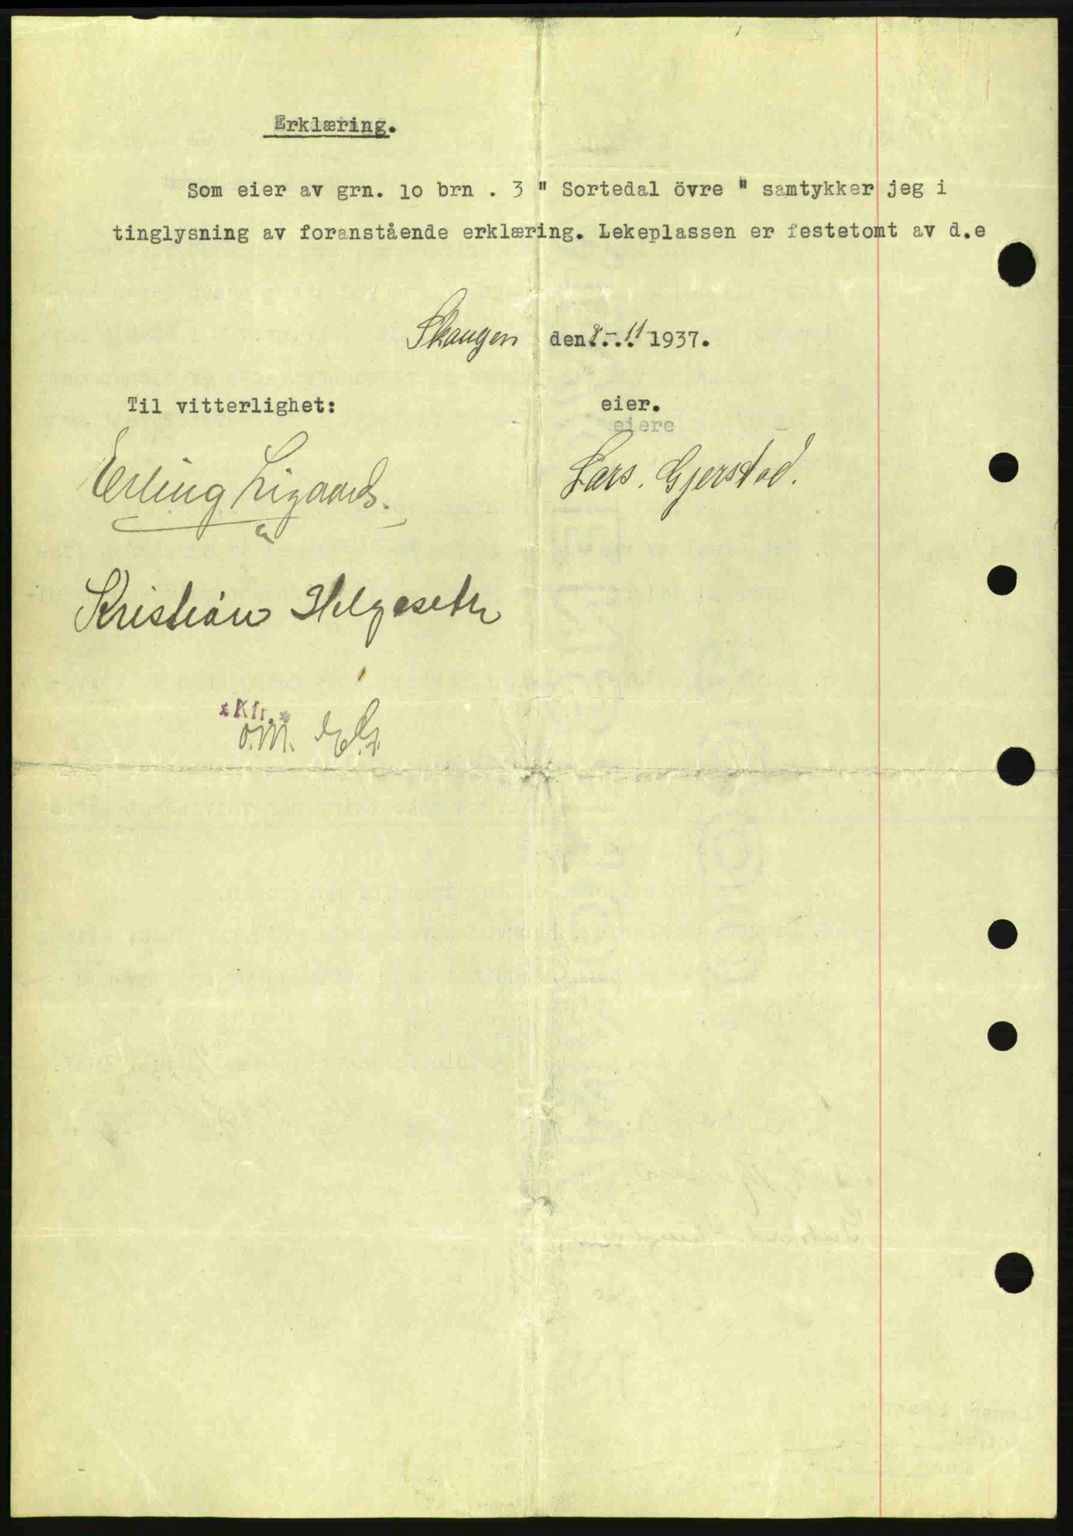 Erklæring.
Som eier av grn. 10 brn . 3 " Sortedal övre " samtykker jeg i
tinglysning av foranstående erklæring. Lekeplassen er festetomt av d.e
Skaugen den 8.-11 1937.
Til vitterlighet:
eier.
eiere
Erling Ligaard.
Lars. Gjerstad.
Kristian Helgeseth
*Kfr.*